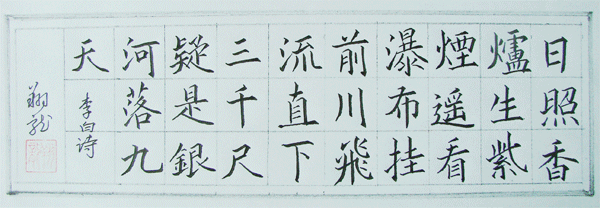 日照香
爐生紫
煙遥看
瀑布挂
前川飛
流直下
三千尺
疑是銀
河落九
天
李白诗
翔龍